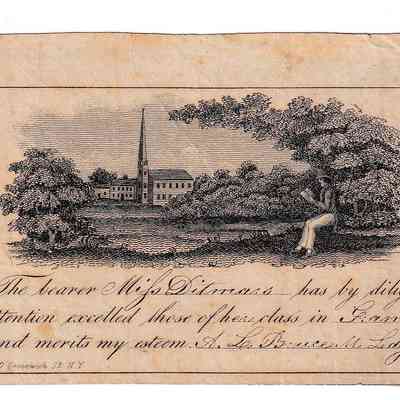 The bearer Miss Ditmars has by dili
ttention excelled those of her class in Gram
nd merits my esteem A. L. Bruce
Greenwich St N.Y.